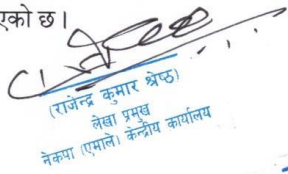 एको छ।
(राजेन्द्र कुमार श्रेष्ठ)
लेखा प्रमुख
नेकपा (एमाले) केन्द्रीय कार्यालय